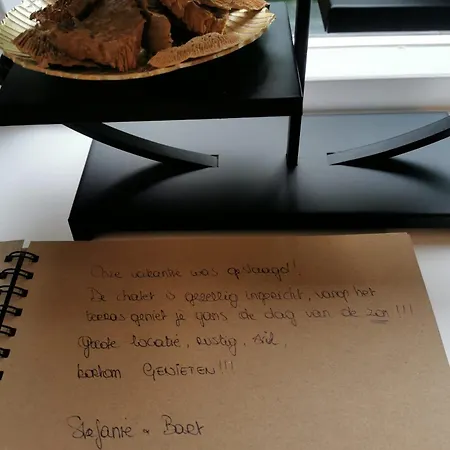 Onze vakantie was opslaagd!
De chalet is gezellig ingericht, vanop het
terras geniet je gans de dag van de zon!!!
Goede locatie, rustig, stil,
kortom GENIETEN!!!
Stefanie & Bart